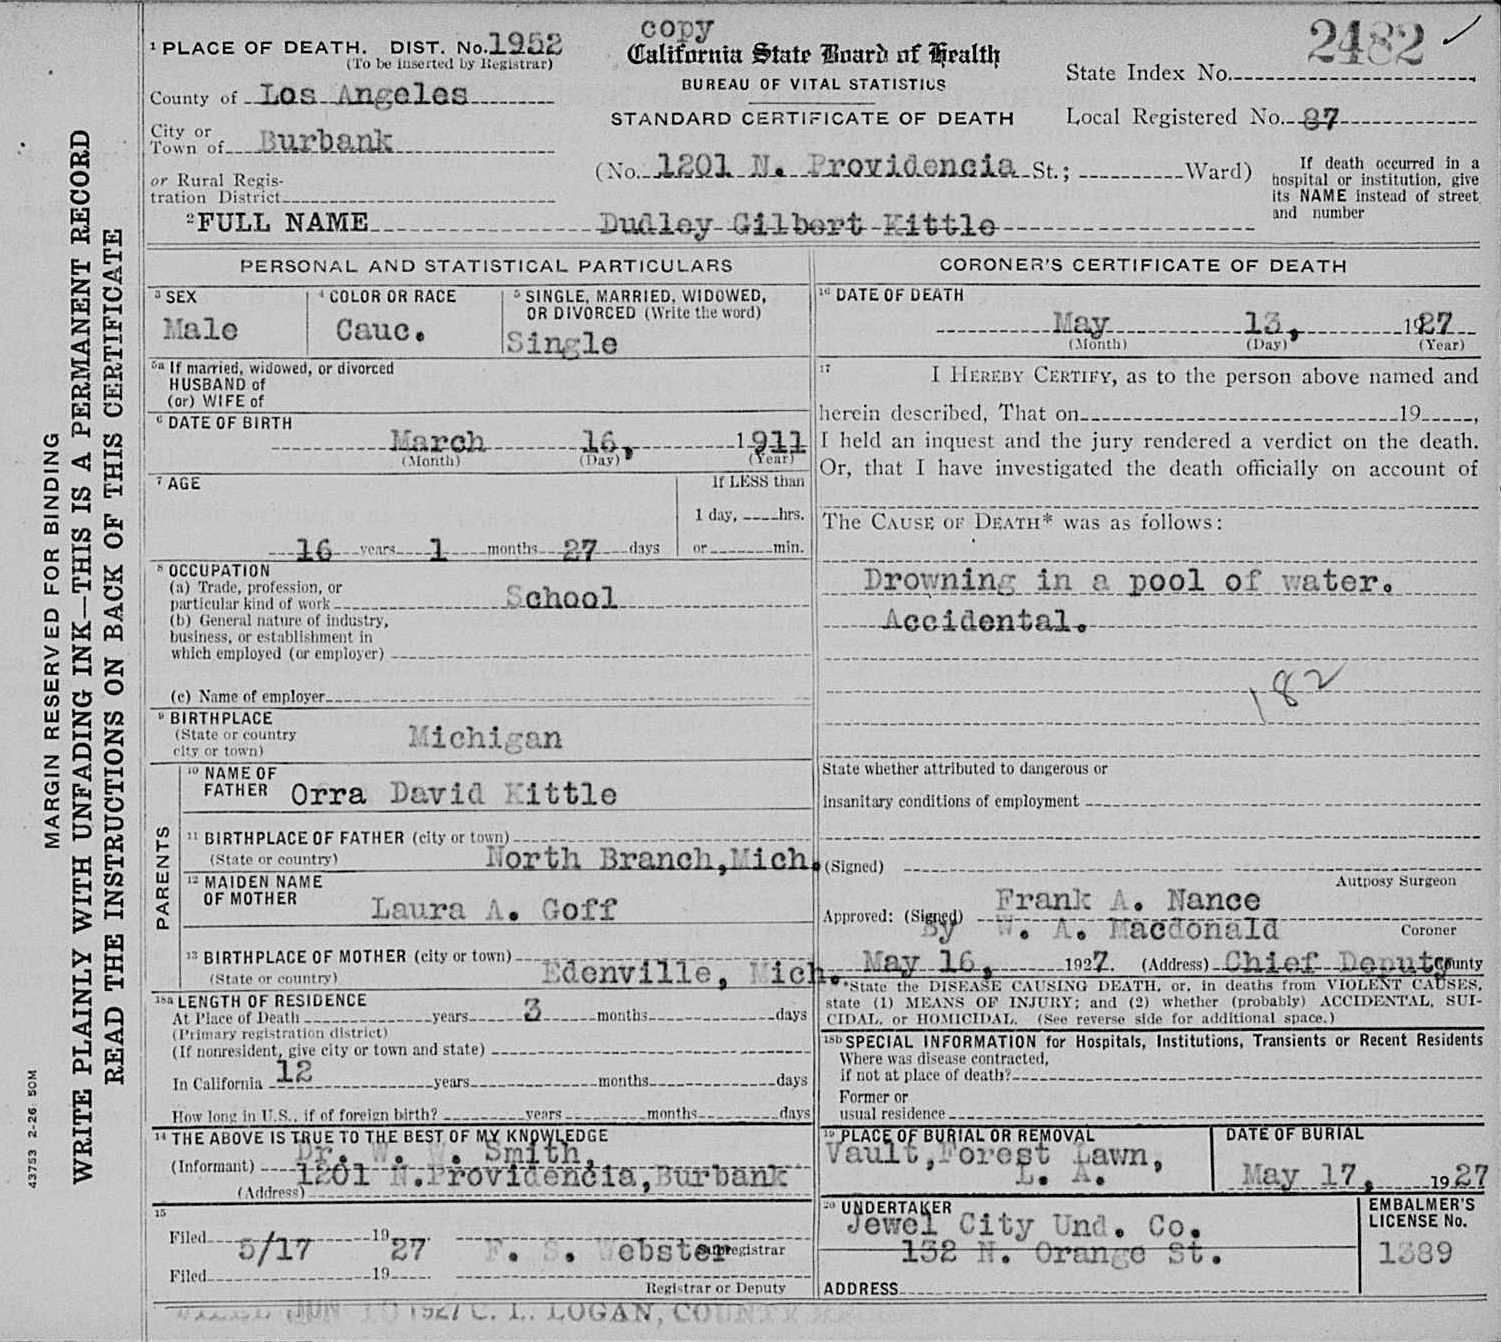 copy
2482 ✓
1 PLACE OF DEATH. DIST. No. 1952
(To be inserted by Registrar)
California State Board of Health
BUREAU OF VITAL STATISTICS
State Index No.
County of Los Angeles
STANDARD CERTIFICATE OF DEATH
Local Registered No. 87
City or
Town of Burbank
(No. 1201 N. Providencia St.; Ward)
If death occurred in a
hospital or institution, give
its NAME instead of street
and number
or Rural Regis-
tration District
2 FULL NAME Dudley Gilbert Kittle
PERSONAL AND STATISTICAL PARTICULARS
3 SEX
Male
4 COLOR OR RACE
Cauc.
5 SINGLE, MARRIED, WIDOWED,
OR DIVORCED (Write the word)
Single
5a If married, widowed, or divorced
HUSBAND of
(or) WIFE of
6 DATE OF BIRTH
March 16, 1911
(Month) (Day) (Year)
7 AGE
If LESS than
1 day, hrs.
16 years 1 months 27 days or min.
8 OCCUPATION
(a) Trade, profession, or
particular kind of work School
(b) General nature of industry,
business, or establishment in
which employed (or employer)
(c) Name of employer
9 BIRTHPLACE
(State or country
city or town)
Michigan
PARENTS
10 NAME OF
FATHER Orra David Kittle
11 BIRTHPLACE OF FATHER (city or town)
(State or country) North Branch, Mich.
12 MAIDEN NAME
OF MOTHER Laura A. Goff
13 BIRTHPLACE OF MOTHER (city or town)
(State or country) Edenville, Mich.
18a LENGTH OF RESIDENCE
At Place of Death years 3 months days
(Primary registration district)
(If nonresident, give city or town and state)
In California 12 years months days
How long in U.S., if of foreign birth? years months days
14 THE ABOVE IS TRUE TO THE BEST OF MY KNOWLEDGE
(Informant) Dr. W. W. Smith,
1201 N. Providencia, Burbank
(Address)
15
Filed 5/17 1927 F. S. Webster Subregistrar
Filed 19
Registrar or Deputy
CORONER'S CERTIFICATE OF DEATH
16 DATE OF DEATH
May 13, 1927
(Month) (Day) (Year)
17 I HEREBY CERTIFY, as to the person above named and
herein described, That on 19 ,
I held an inquest and the jury rendered a verdict on the death.
Or, that I have investigated the death officially on account of
The CAUSE OF DEATH* was as follows:
Drowning in a pool of water.
Accidental.
182
State whether attributed to dangerous or
insanitary conditions of employment
(Signed)
Autposy Surgeon
Approved: (Signed) Frank A. Nance
By W. A. Macdonald
Coroner
May 16, 1927. (Address) Chief Deputy County
*State the DISEASE CAUSING DEATH, or, in deaths from VIOLENT CAUSES,
state (1) MEANS OF INJURY; and (2) whether (probably) ACCIDENTAL, SUI-
CIDAL, or HOMICIDAL. (See reverse side for additional space.)
18b SPECIAL INFORMATION for Hospitals, Institutions, Transients or Recent Residents
Where was disease contracted,
if not at place of death?
Former or
usual residence
19 PLACE OF BURIAL OR REMOVAL
Vault, Forest Lawn,
L. A.
DATE OF BURIAL
May 17, 1927
20 UNDERTAKER
Jewel City Und. Co.
132 N. Orange St.
ADDRESS
EMBALMER'S
LICENSE No.
1389
JUN 10 1927 C. L. LOGAN, COUNTY
MARGIN RESERVED FOR BINDING
WRITE PLAINLY WITH UNFADING INK—THIS IS A PERMANENT RECORD
READ THE INSTRUCTIONS ON BACK OF THIS CERTIFICATE
43753 2-26 50M